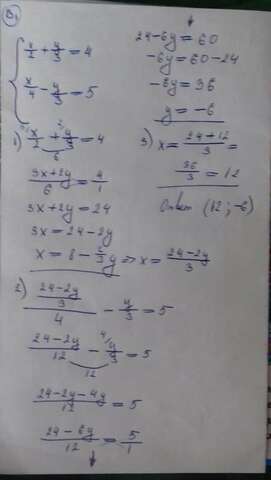 B₁
x/2 + y/3 = 4
x/4 - y/3 = 5
1) x/2 + y/3 = 4
3x+2y/6 = 4/1
3x+2y = 24
3x = 24-2y
x = 8 - 2/3 y => x = 24-2y/3
2) 24-2y/3/4 - y/3 = 5
24-2y/12 - y/3 = 5
12
24-2y-4y/12 = 5
24-6y/12 = 5/1
24-6y = 60
-6y = 60-24
-6y = 36
y = -6
3) x = 24+12/3 =
36/3 = 12
Ответ (12; -6)